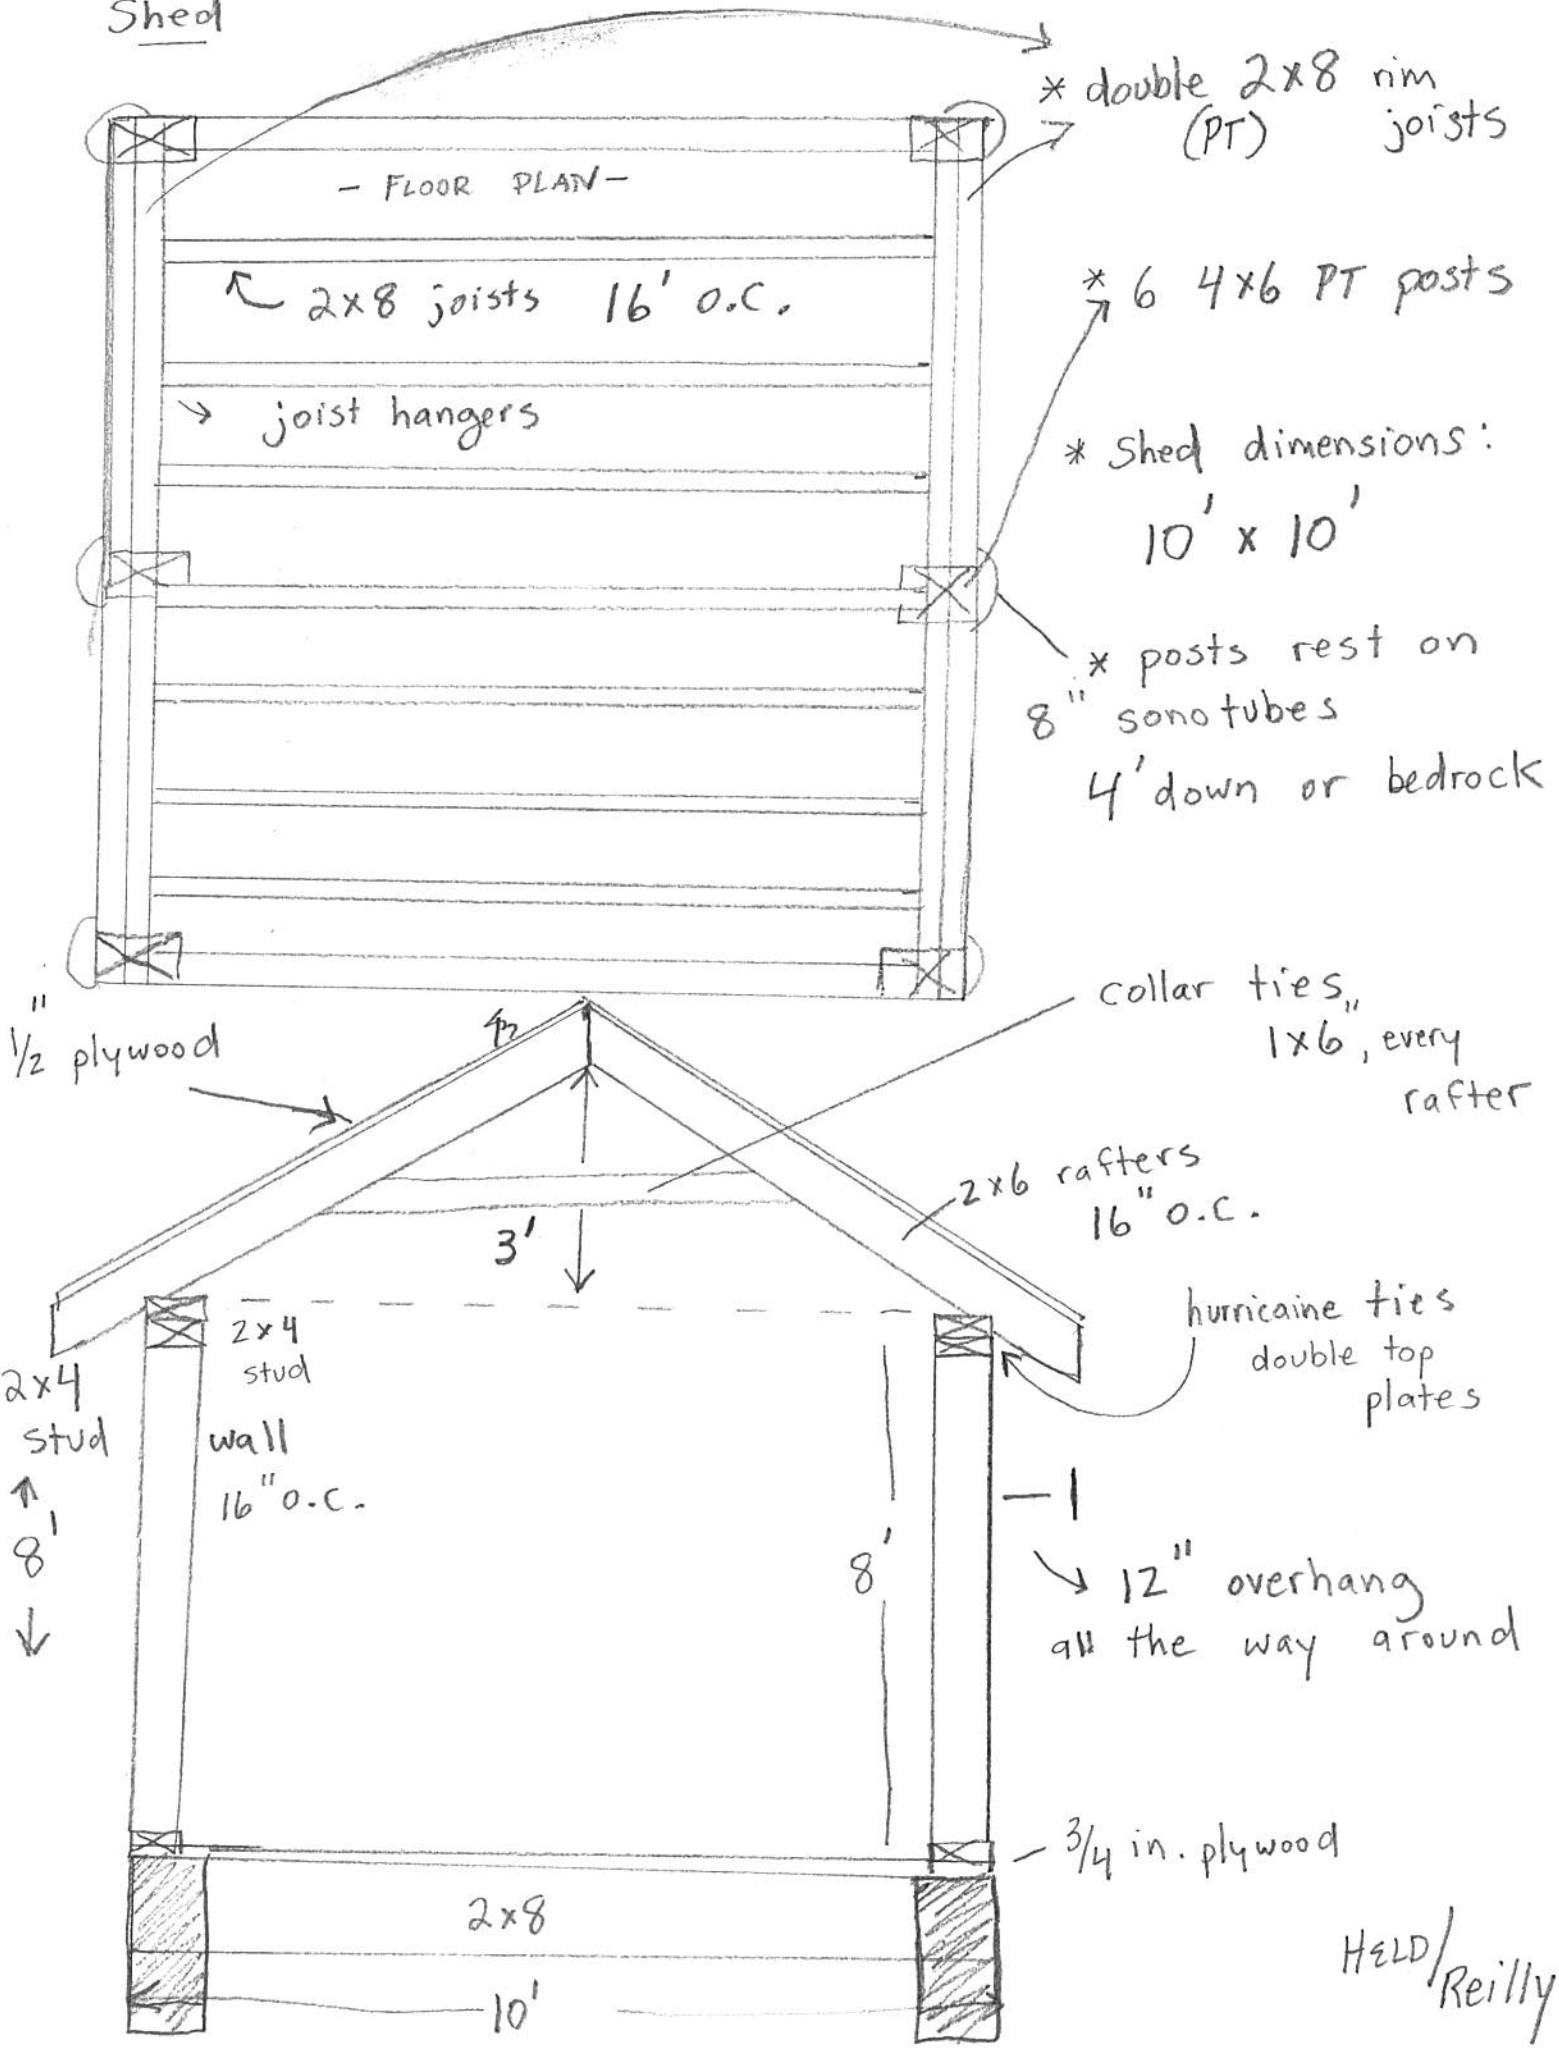 Shed
* double 2x8 rim
(PT) joists
- FLOOR PLAN -
2x8 joists 16' o.c.
* 6 4x6 PT posts
joist hangers
* Shed dimensions:
10' x 10'
* posts rest on
8" sonotubes
4' down or bedrock
1/2" plywood
collar ties,
1x6", every
rafter
2x6 rafters
16" o.c.
3'
hurricaine ties
double top
plates
2x4
stud
2x4
stud
wall
16" o.c.
8'
8'
12" overhang
all the way around
3/4 in. plywood
2x8
10'
HELD/
Reilly